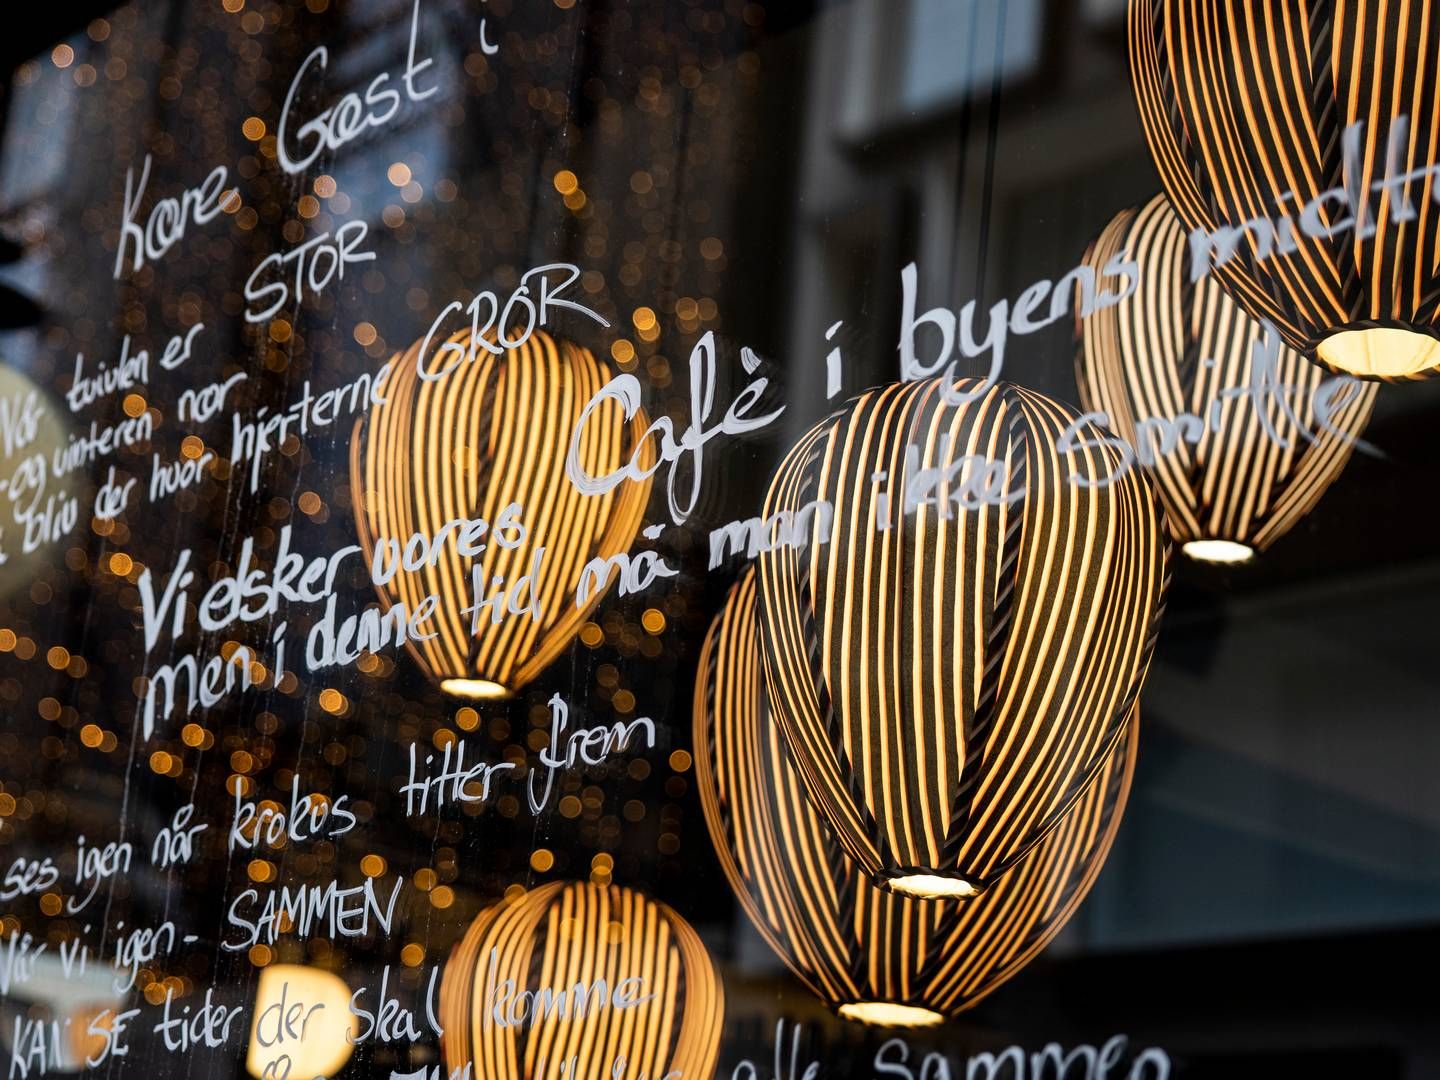 Kære Gæst i
Café i byens midte
Når tvivlen er STOR
- og vinteren nær
bliv der hvor hjerterne GROR
Vi elsker vores
men i denne tid må man ikke Smitte
ses igen når krokus titter frem
Når vi igen - SAMMEN
KAN SE tider der skal komme
alle sammen